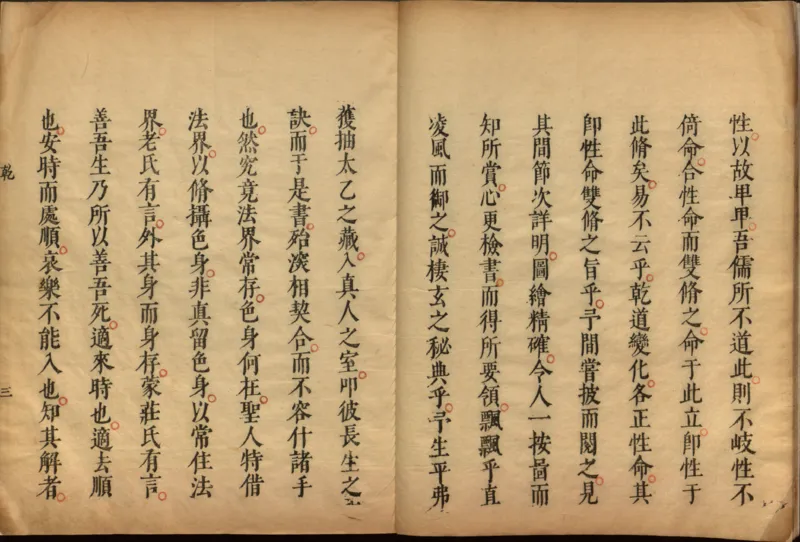 性以故卑卑吾儒所不道此則不岐性不
倚命合性命而雙脩之命于此立卽性于
此脩矣易不云乎乾道變化各正性命其
卽性命雙脩之旨乎予間嘗披而閱之見
其間節次詳明圖繪精確令人一按啚而
知所賞心更檢書而得所要領飄飄乎直
凌風而御之誠棲玄之秘典乎予生平弗
獲抽太乙之藏入真人之室叩彼長生之
訣而于是書殆深相契合而不容什諸手
也然究竟法界常存色身何在聖人特借
法界以脩攝色身非真留色身以常住法
界老氏有言外其身而身存蒙莊氏有言
善吾生乃所以善吾死適來時也適去順
也安時而處順哀樂不能入也知其解者
乾
三